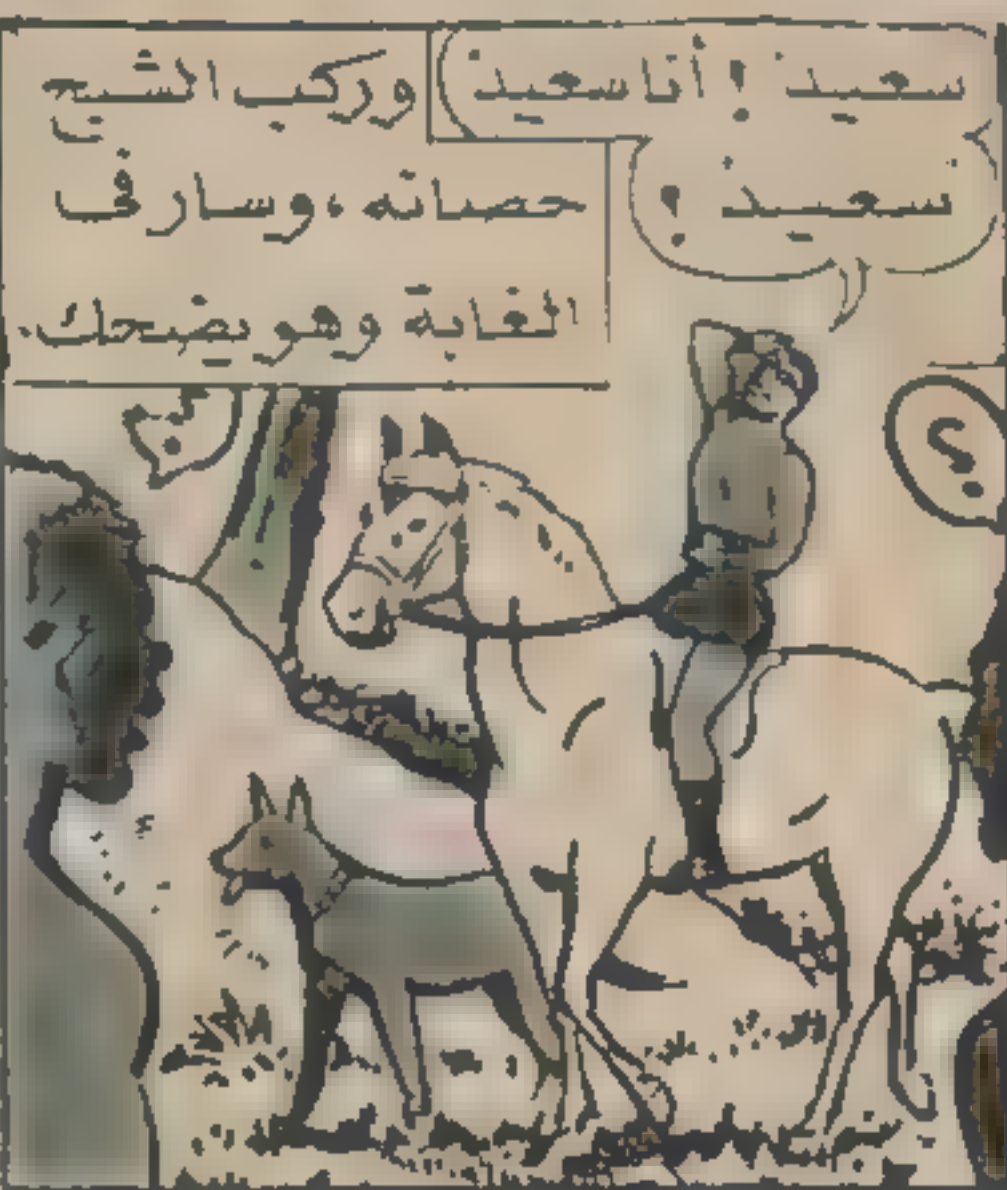 سعيد ! أنا سعيد
سعيد !
وركب الشبح
حصانه ، وسار فى
الغابة وهو يضحك .
؟